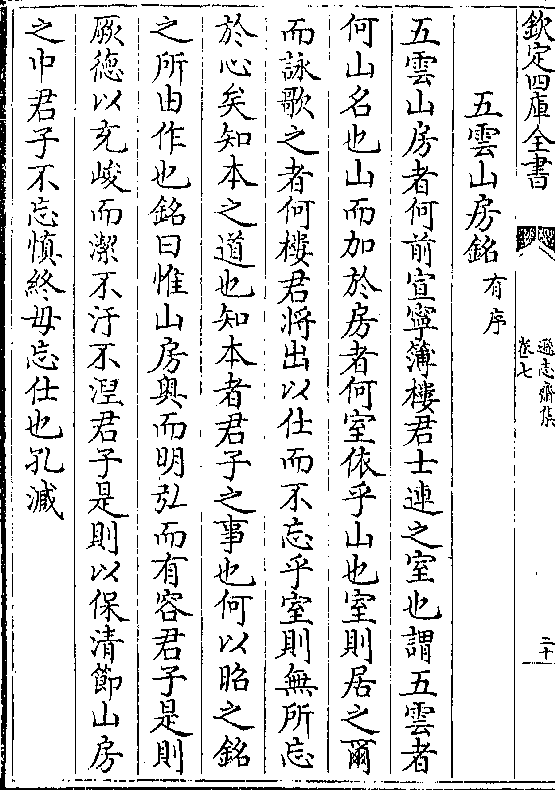 欽定四庫全書
遜志齋集
卷七
二十
五雲山房銘有序
五雲山房者何前宣寧薄樓君士連之室也謂五雲者
何山名也山而加於房者何室依乎山也室則居之爾
而詠歌之者何樓君將出以仕而不忘乎室則無所忘
於心矣知本之道也知本者君子之事也何以昭之銘
之所由作也銘曰惟山房奥而明弘而有容君子是則
厥德以充峻而潔不汙不涅君子是則以保清節山房
之中君子不忘慎終毋忘仕也孔減